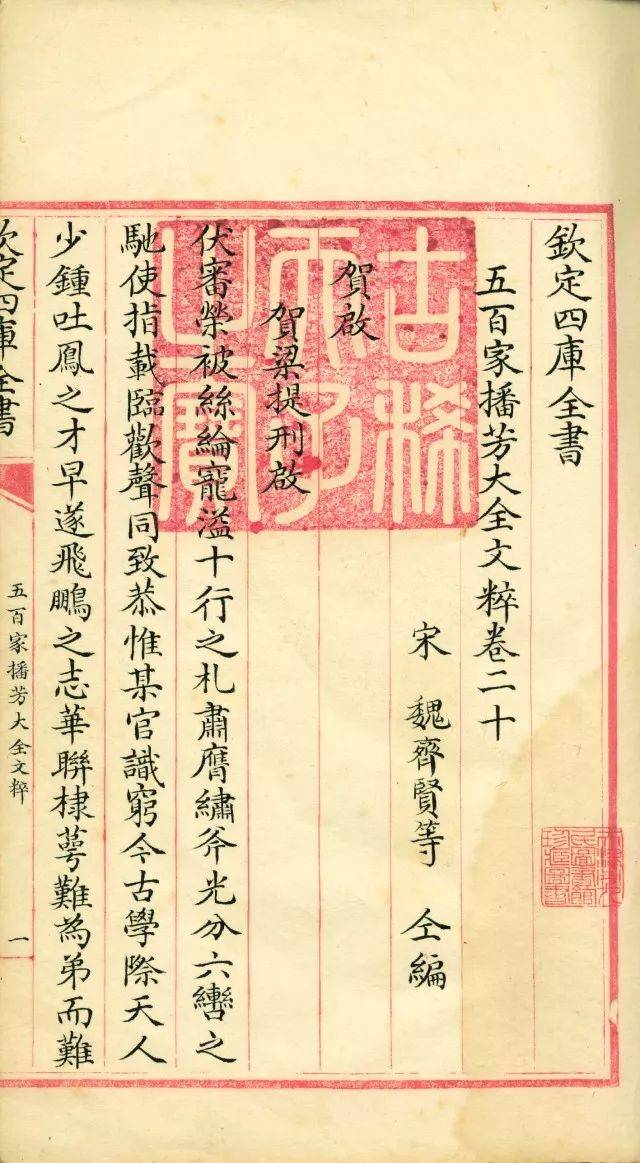 欽定四庫全書
五百家播芳大全文粹卷二十
宋 魏齊賢等 仝編
賀啟
賀梁提刑啟
伏審榮被絲綸寵溢十行之札肅膺繡斧光分六轡之
馳使指載臨歡聲同致恭惟某官識窮今古學際天人
少鍾吐鳳之才早遂飛鵬之志華聯棣萼難為弟而難
欽定四庫全書
五百家播芳大全文粹
一
古稀
天子
之寶